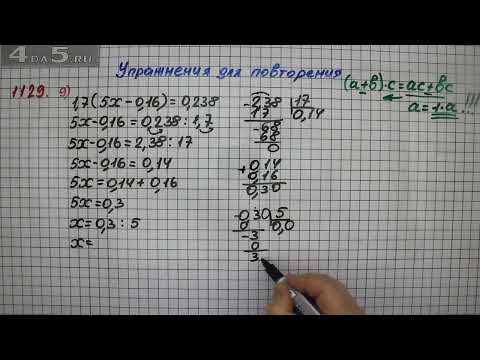 4DA5.RU
Упражнения для повторения
1129. 9)
1,7(5x-0,16)=0,238
5x-0,16=0,238:1,7
5x-0,16=2,38:17
5x-0,16=0,14
5x=0,14+0,16
5x=0,3
x=0,3:5
x=
-2,38 17
17 0,14
-68
68
0
+0,14
0,16
0,30
-0,30 5
0 0,0
-3
0
3
(a+b)·c=ac+bc
a=1·a !!!